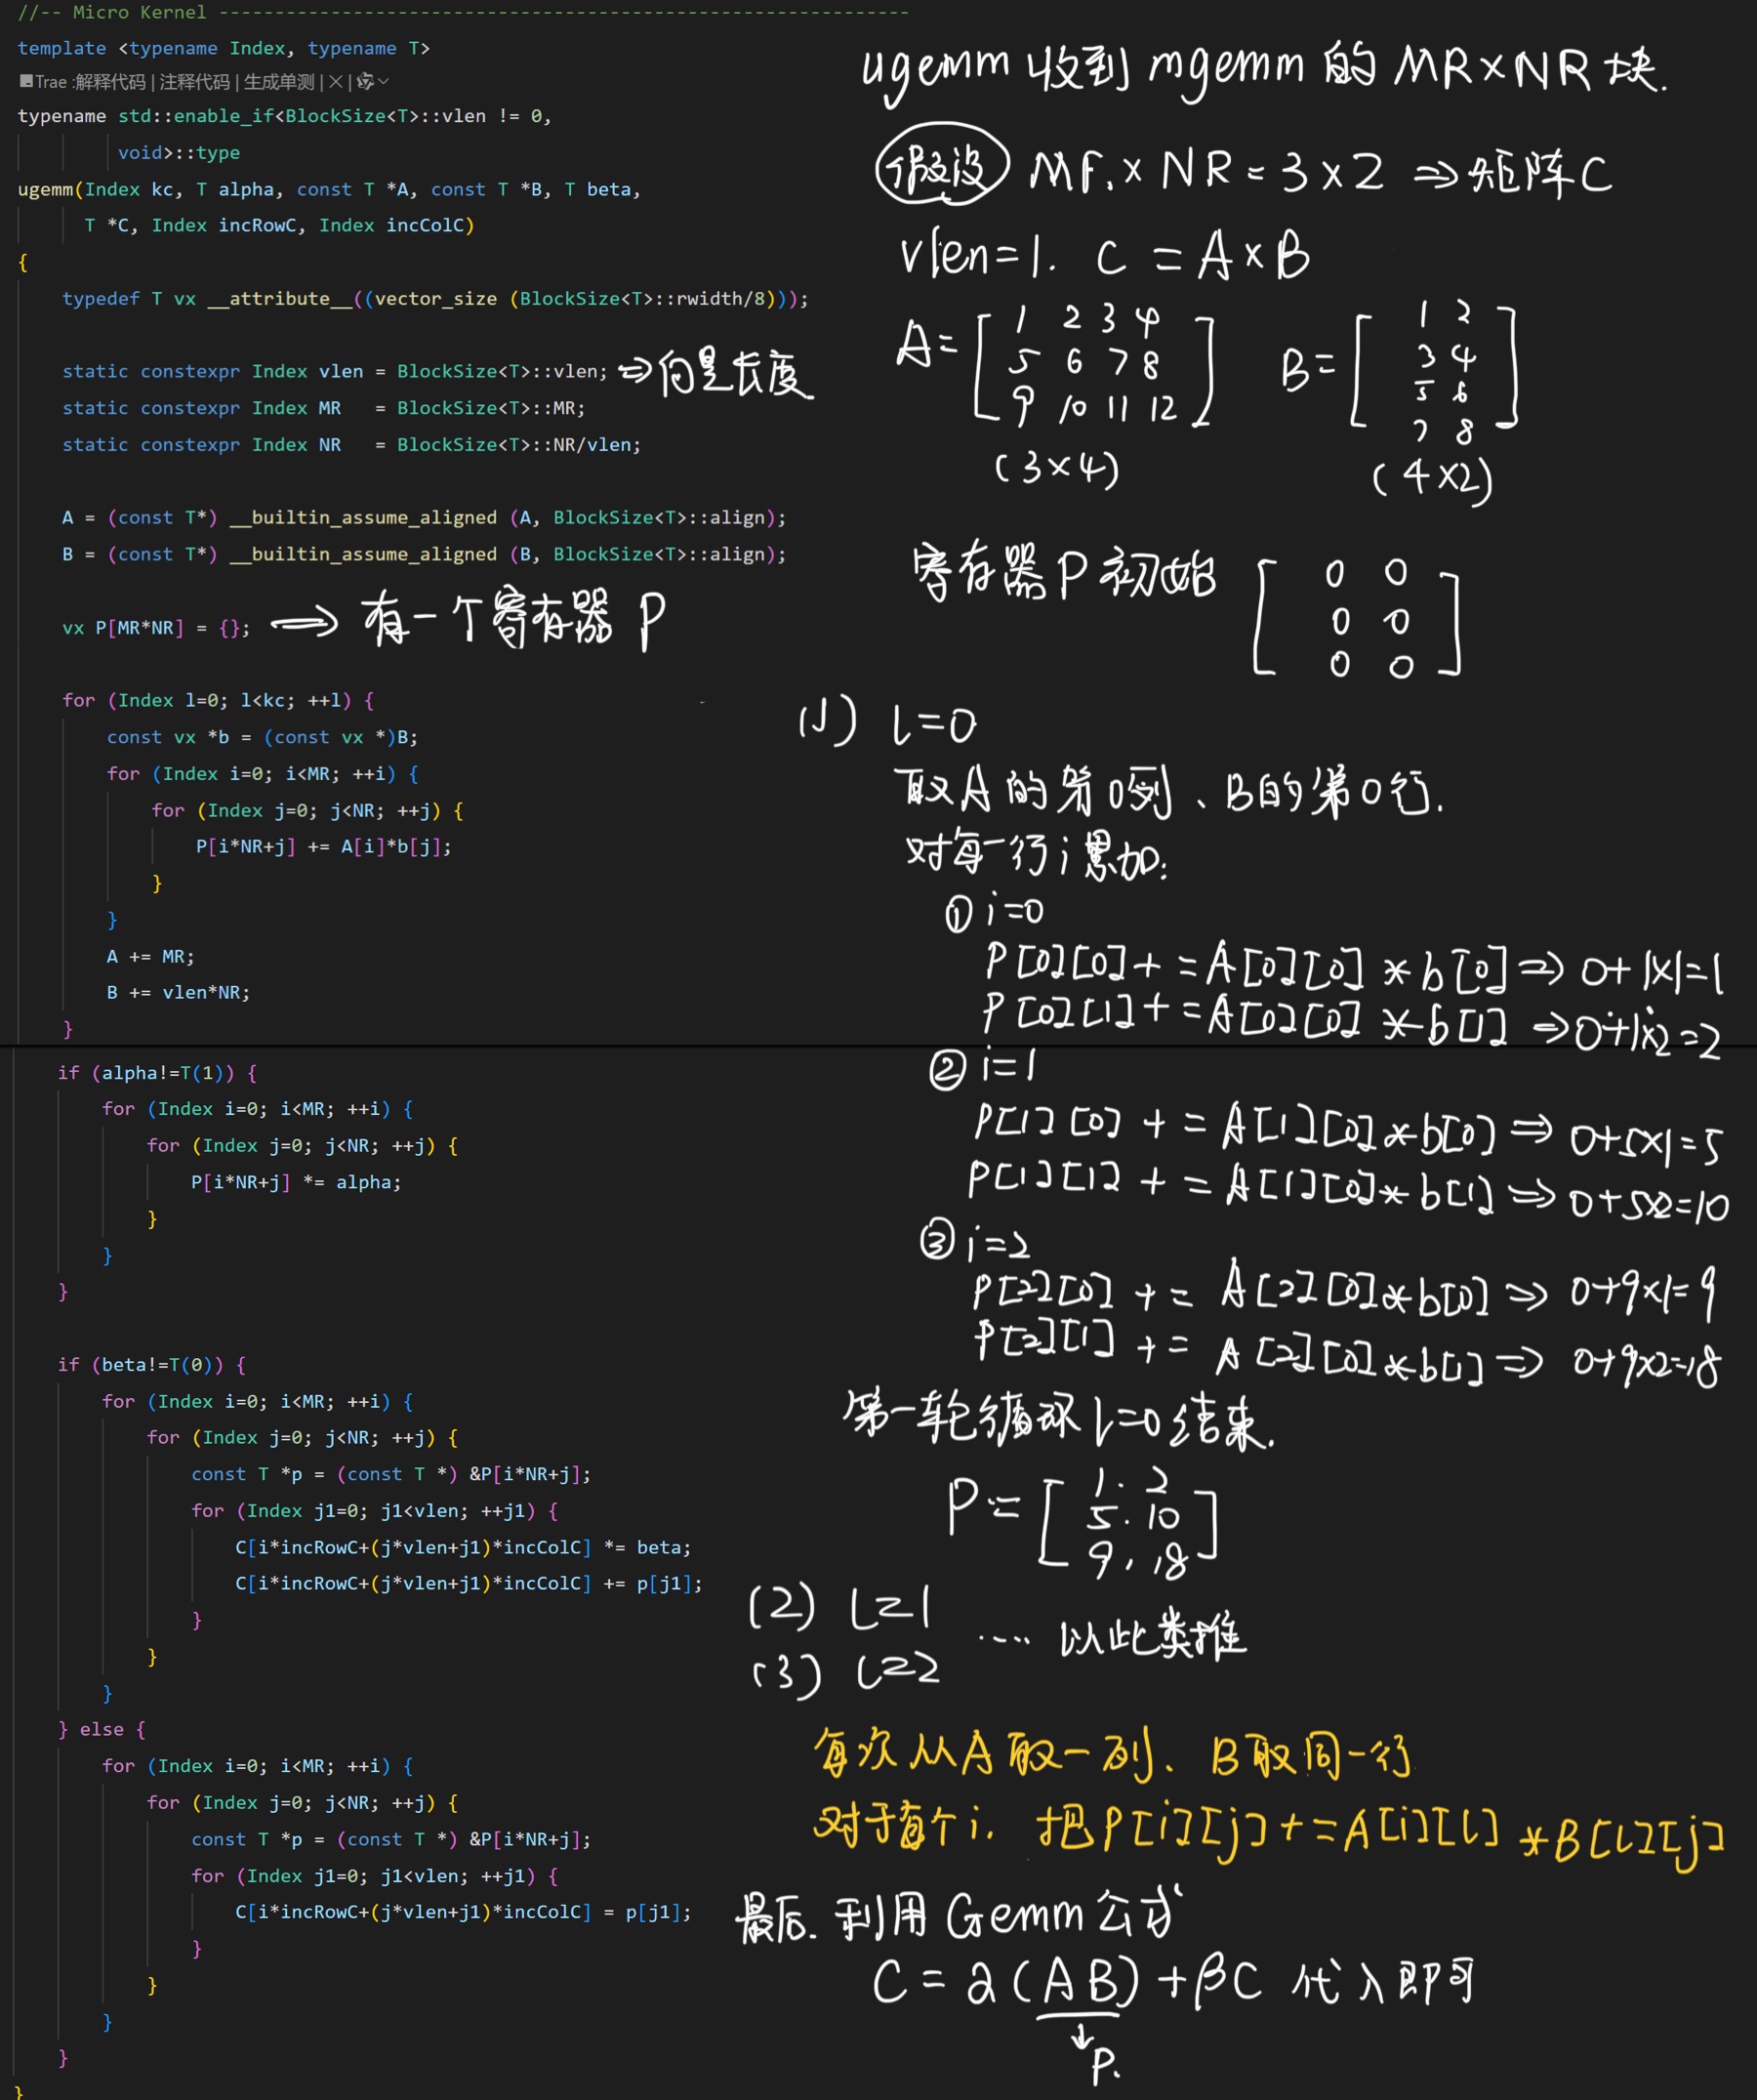 //-- Micro Kernel ---------------------------------------------------------------
template <typename Index, typename T>
Trae :解释代码 | 注释代码 | 生成单测 | × |
typename std::enable_if<BlockSize<T>::vlen != 0,
void>::type
ugemm(Index kc, T alpha, const T *A, const T *B, T beta,
T *C, Index incRowC, Index incColC)
{
typedef T vx __attribute__((vector_size (BlockSize<T>::rwidth/8)));
static constexpr Index vlen = BlockSize<T>::vlen; ⇒向量长度
static constexpr Index MR   = BlockSize<T>::MR;
static constexpr Index NR   = BlockSize<T>::NR/vlen;
A = (const T*) __builtin_assume_aligned (A, BlockSize<T>::align);
B = (const T*) __builtin_assume_aligned (B, BlockSize<T>::align);
vx P[MR*NR] = {}; ⇒ 有一个寄存器 P
for (Index l=0; l<kc; ++l) {
const vx *b = (const vx *)B;
for (Index i=0; i<MR; ++i) {
for (Index j=0; j<NR; ++j) {
P[i*NR+j] += A[i]*b[j];
}
}
A += MR;
B += vlen*NR;
}
if (alpha!=T(1)) {
for (Index i=0; i<MR; ++i) {
for (Index j=0; j<NR; ++j) {
P[i*NR+j] *= alpha;
}
}
}
if (beta!=T(0)) {
for (Index i=0; i<MR; ++i) {
for (Index j=0; j<NR; ++j) {
const T *p = (const T *) &P[i*NR+j];
for (Index j1=0; j1<vlen; ++j1) {
C[i*incRowC+(j*vlen+j1)*incColC] *= beta;
C[i*incRowC+(j*vlen+j1)*incColC] += p[j1];
}
}
}
} else {
for (Index i=0; i<MR; ++i) {
for (Index j=0; j<NR; ++j) {
const T *p = (const T *) &P[i*NR+j];
for (Index j1=0; j1<vlen; ++j1) {
C[i*incRowC+(j*vlen+j1)*incColC] = p[j1];
}
}
}
}
}
ugemm 收到 mgemm 的 MR×NR 块.
假设 MR × NR = 3×2 ⇒ 矩阵C
vlen=1. C = A×B
A= [ 1 2 3 4 B= [ 1 2
5 6 7 8 3 4
9 10 11 12 ] 5 6
7 8 ]
(3×4) (4×2)
寄存器 P 初始 [ 0 0
0 0
0 0 ]
(1) l=0
取A的第0列、B的第0行.
对每一行i累加:
① i=0
P[0][0]+=A[0][0]*b[0]⇒0+1×1=1
P[0][1]+=A[0][0]*b[1]⇒0+1×2=2
② i=1
P[1][0]+=A[1][0]*b[0]⇒0+5×1=5
P[1][1]+=A[1][0]*b[1]⇒0+5×2=10
③ i=2
P[2][0]+=A[2][0]*b[0]⇒0+9×1=9
P[2][1]+=A[2][0]*b[1]⇒0+9×2=18
第一轮循环l=0结束.
P= [ 1. 2
5. 10
9. 18 ]
(2) l=1
.... 以此类推
(3) l=2
每次从A取一列、B取同一行
对于每个i. 把P[i][j]+=A[i][l]*B[l][j]
最后.利用Gemm公式
C = α(AB)+βC 代入即可
↓
P.